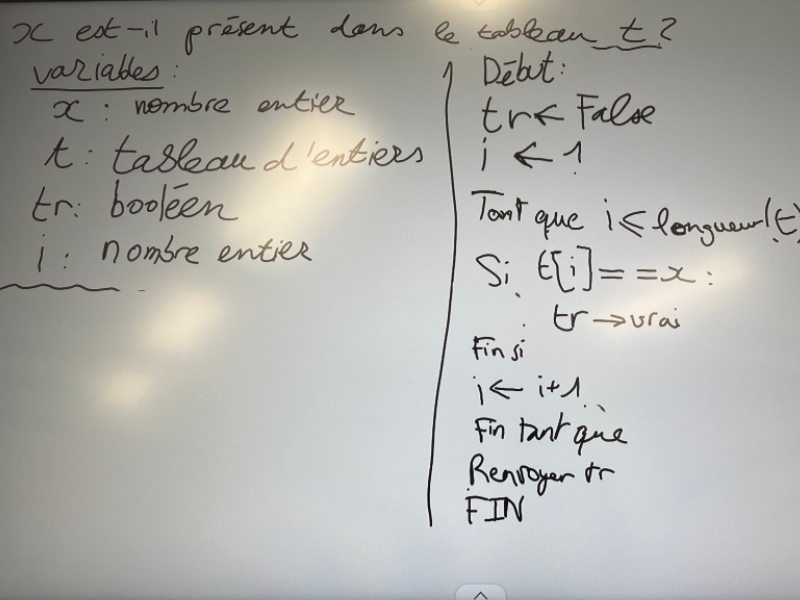 x est-il présent dans le tableau t ?
variables :
x : nombre entier
t : tableau d'entiers
tr : booléen
i : nombre entier
Début :
tr ← False
i ← 1
Tant que i ⩽ longueur(t)
Si t[i] == x :
tr → vrai
Fin si
i ← i+1
Fin tant que
Renvoyer tr
FIN